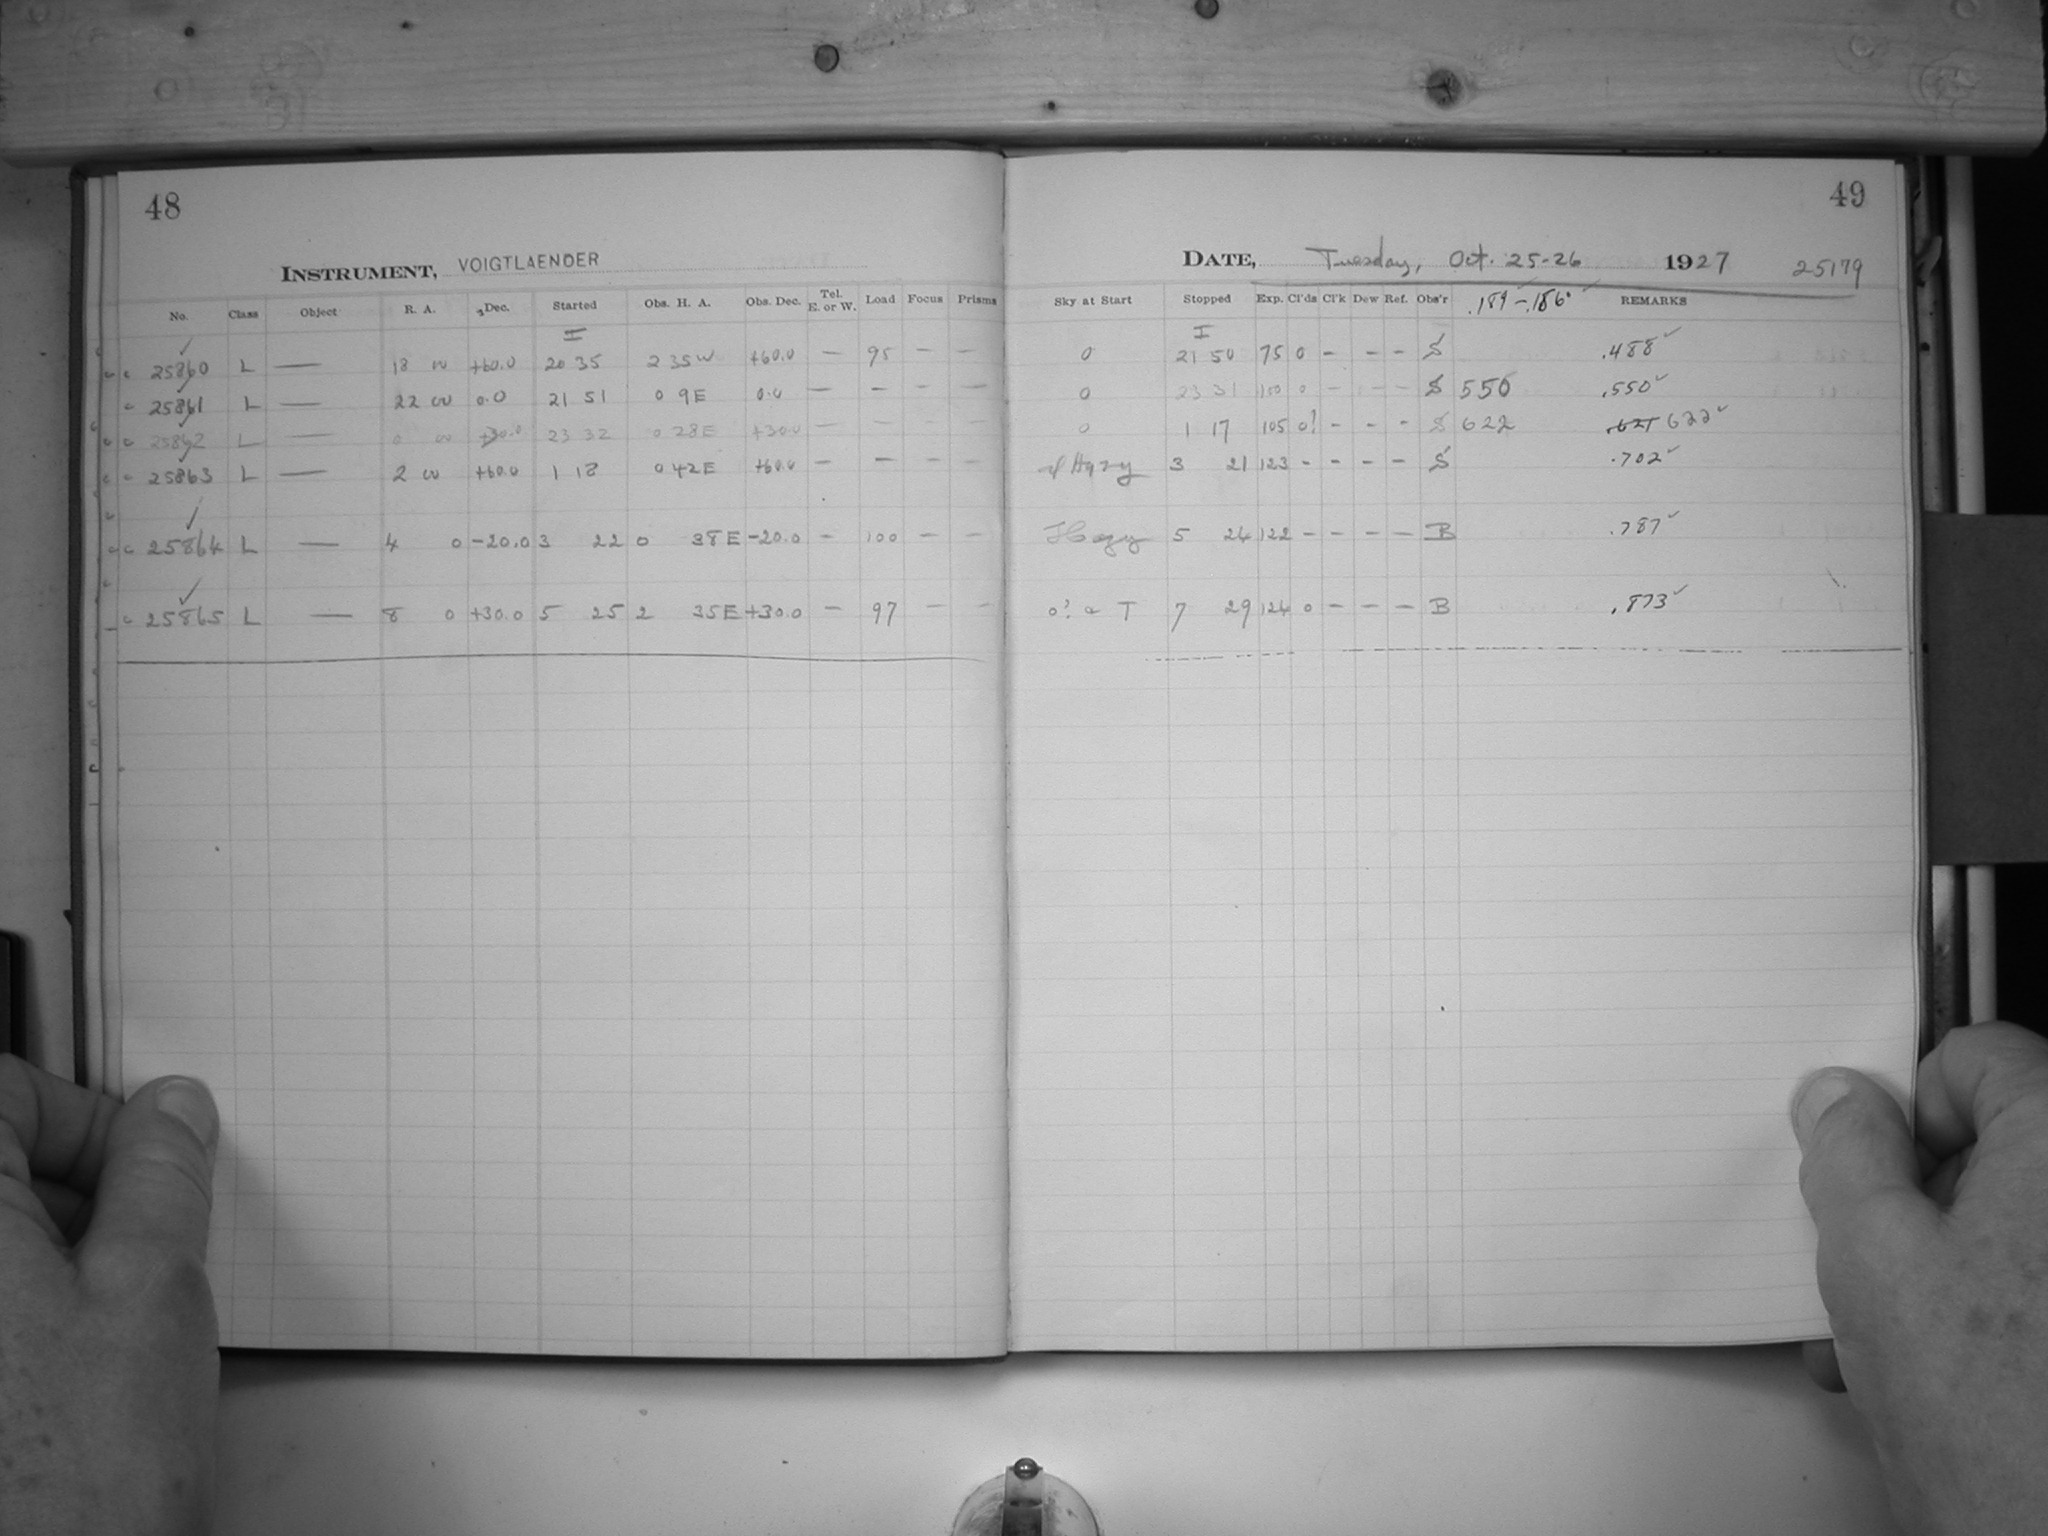 48
INSTRUMENT, VOIGTLAENDER
No. Class Object R. A. Dec. Started Obs. H. A. Obs. Dec. Tel. E. or W. Load Focus Prisms
I
25860 L — 18 00 +60.0 20 35 2 35 W +60.0 — 95 — —
25861 L — 22 00 0.0 21 51 0 9 E 0.0 — — — —
25862 L — 0 00 +30.0 23 32 0 28 E +30.0 — — — —
25863 L — 2 00 +60.0 1 18 0 42 E +60.0 — — — —
25864 L — 4 0 -20.0 3 22 0 38 E -20.0 — 100 — —
25865 L — 8 0 +30.0 5 25 2 35 E +30.0 — 97 — —
49
DATE, Tuesday, Oct. 25-26 1927 25179
Sky at Start Stopped Exp. Cl'ds Cl'k Dew Ref. Obs'r .189 - .186 REMARKS
I
0 21 50 75 0 - - - S .488
0 23 31 100 0 - - - S 550 .550
0 1 17 105 0! - - - S 622 .621 622
Hazy 3 21 123 - - - - S .702
Hazy 5 24 122 - - - - B .787
0? a T 7 29 124 0 - - - B .873